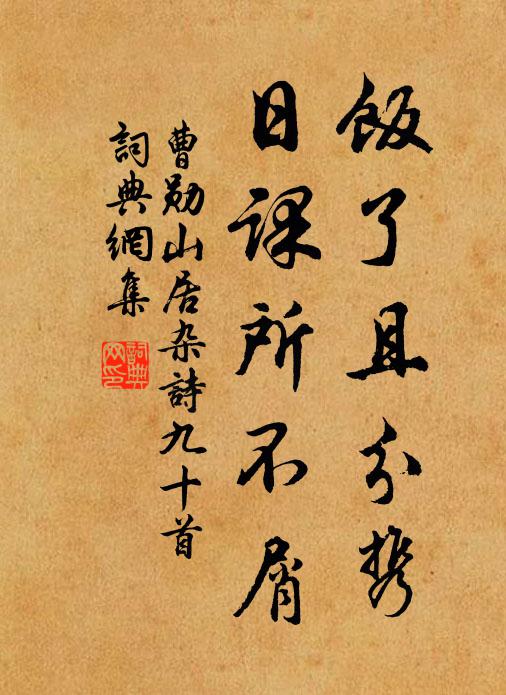 飯了且分攜
日課所不屑
曹勛山居杂詩九十首
詞典網集
詞典網印